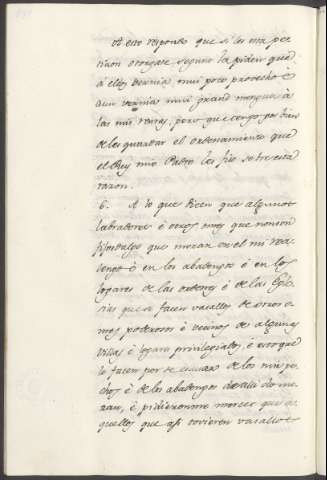 A esto respondo que si les esta pe
ticion otorgase segund la piden que
á ellos vernia mui poco provecho è
aun vernia mui grand mengua à
las mis rentas, pero que tengo por bien
de les guardar el ordenamiento que
el Rey mio Padre les fizo sobre esta
razon.
6. A lo que dicen que algunos
labradores è otros omes que non son
fijosdalgo que moran en el mi rea
lengo è en los abadengos è en los
logares de las ordenes è de las Egle
sias que se facen vasallos de otros o
mes poderosos è vecinos de algunas
villas è logares privilegiados, è esto que
lo facen por se escusar de los mis pe
chos è de los abadengos donde do mo
ran, è pidieronme merced que a
quellos que asi tovieren vasallos